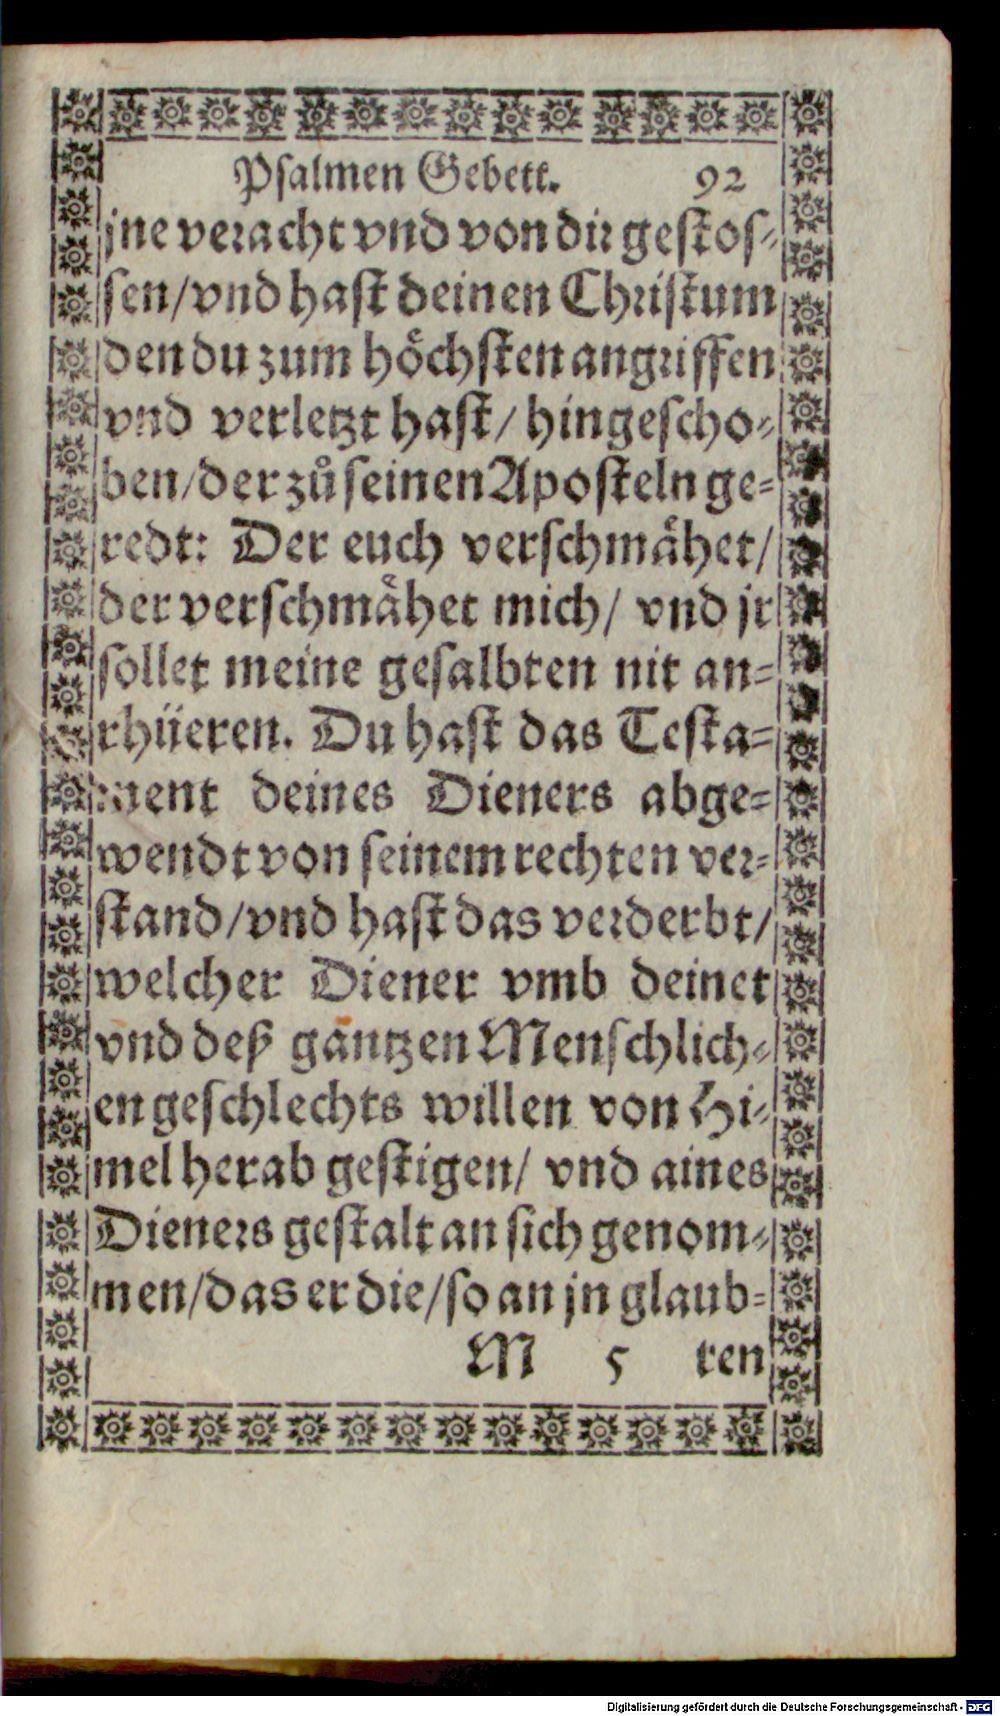 Psalmen Gebett. 92
jne veracht vnd von dir gestos-
sen/vnd hast deinen Christum
den du zum hoͤchsten angriffen
vnd verletzt hast/ hingescho-
ben/der zuͦ seinen Aposteln ge-
redt: Der euch verschmaͤhet/
der verschmaͤhet mich/ vnd jr
sollet meine gesalbten nit an-
rhüeren. Du hast das Testa-
ment deines Dieners abge-
wendt von seinem rechten ver-
stand/vnd hast das verderbt/
welcher Diener vmb deinet
vnd deß gantzen Menschlich-
en geschlechts willen von Hi-
mel herab gestigen/ vnd aines
Dieners gestalt an sich genom-
men/das er die/so an jn glaub-
M 5 ten
Digitalisierung gefördert durch die Deutsche Forschungsgemeinschaft - DFG